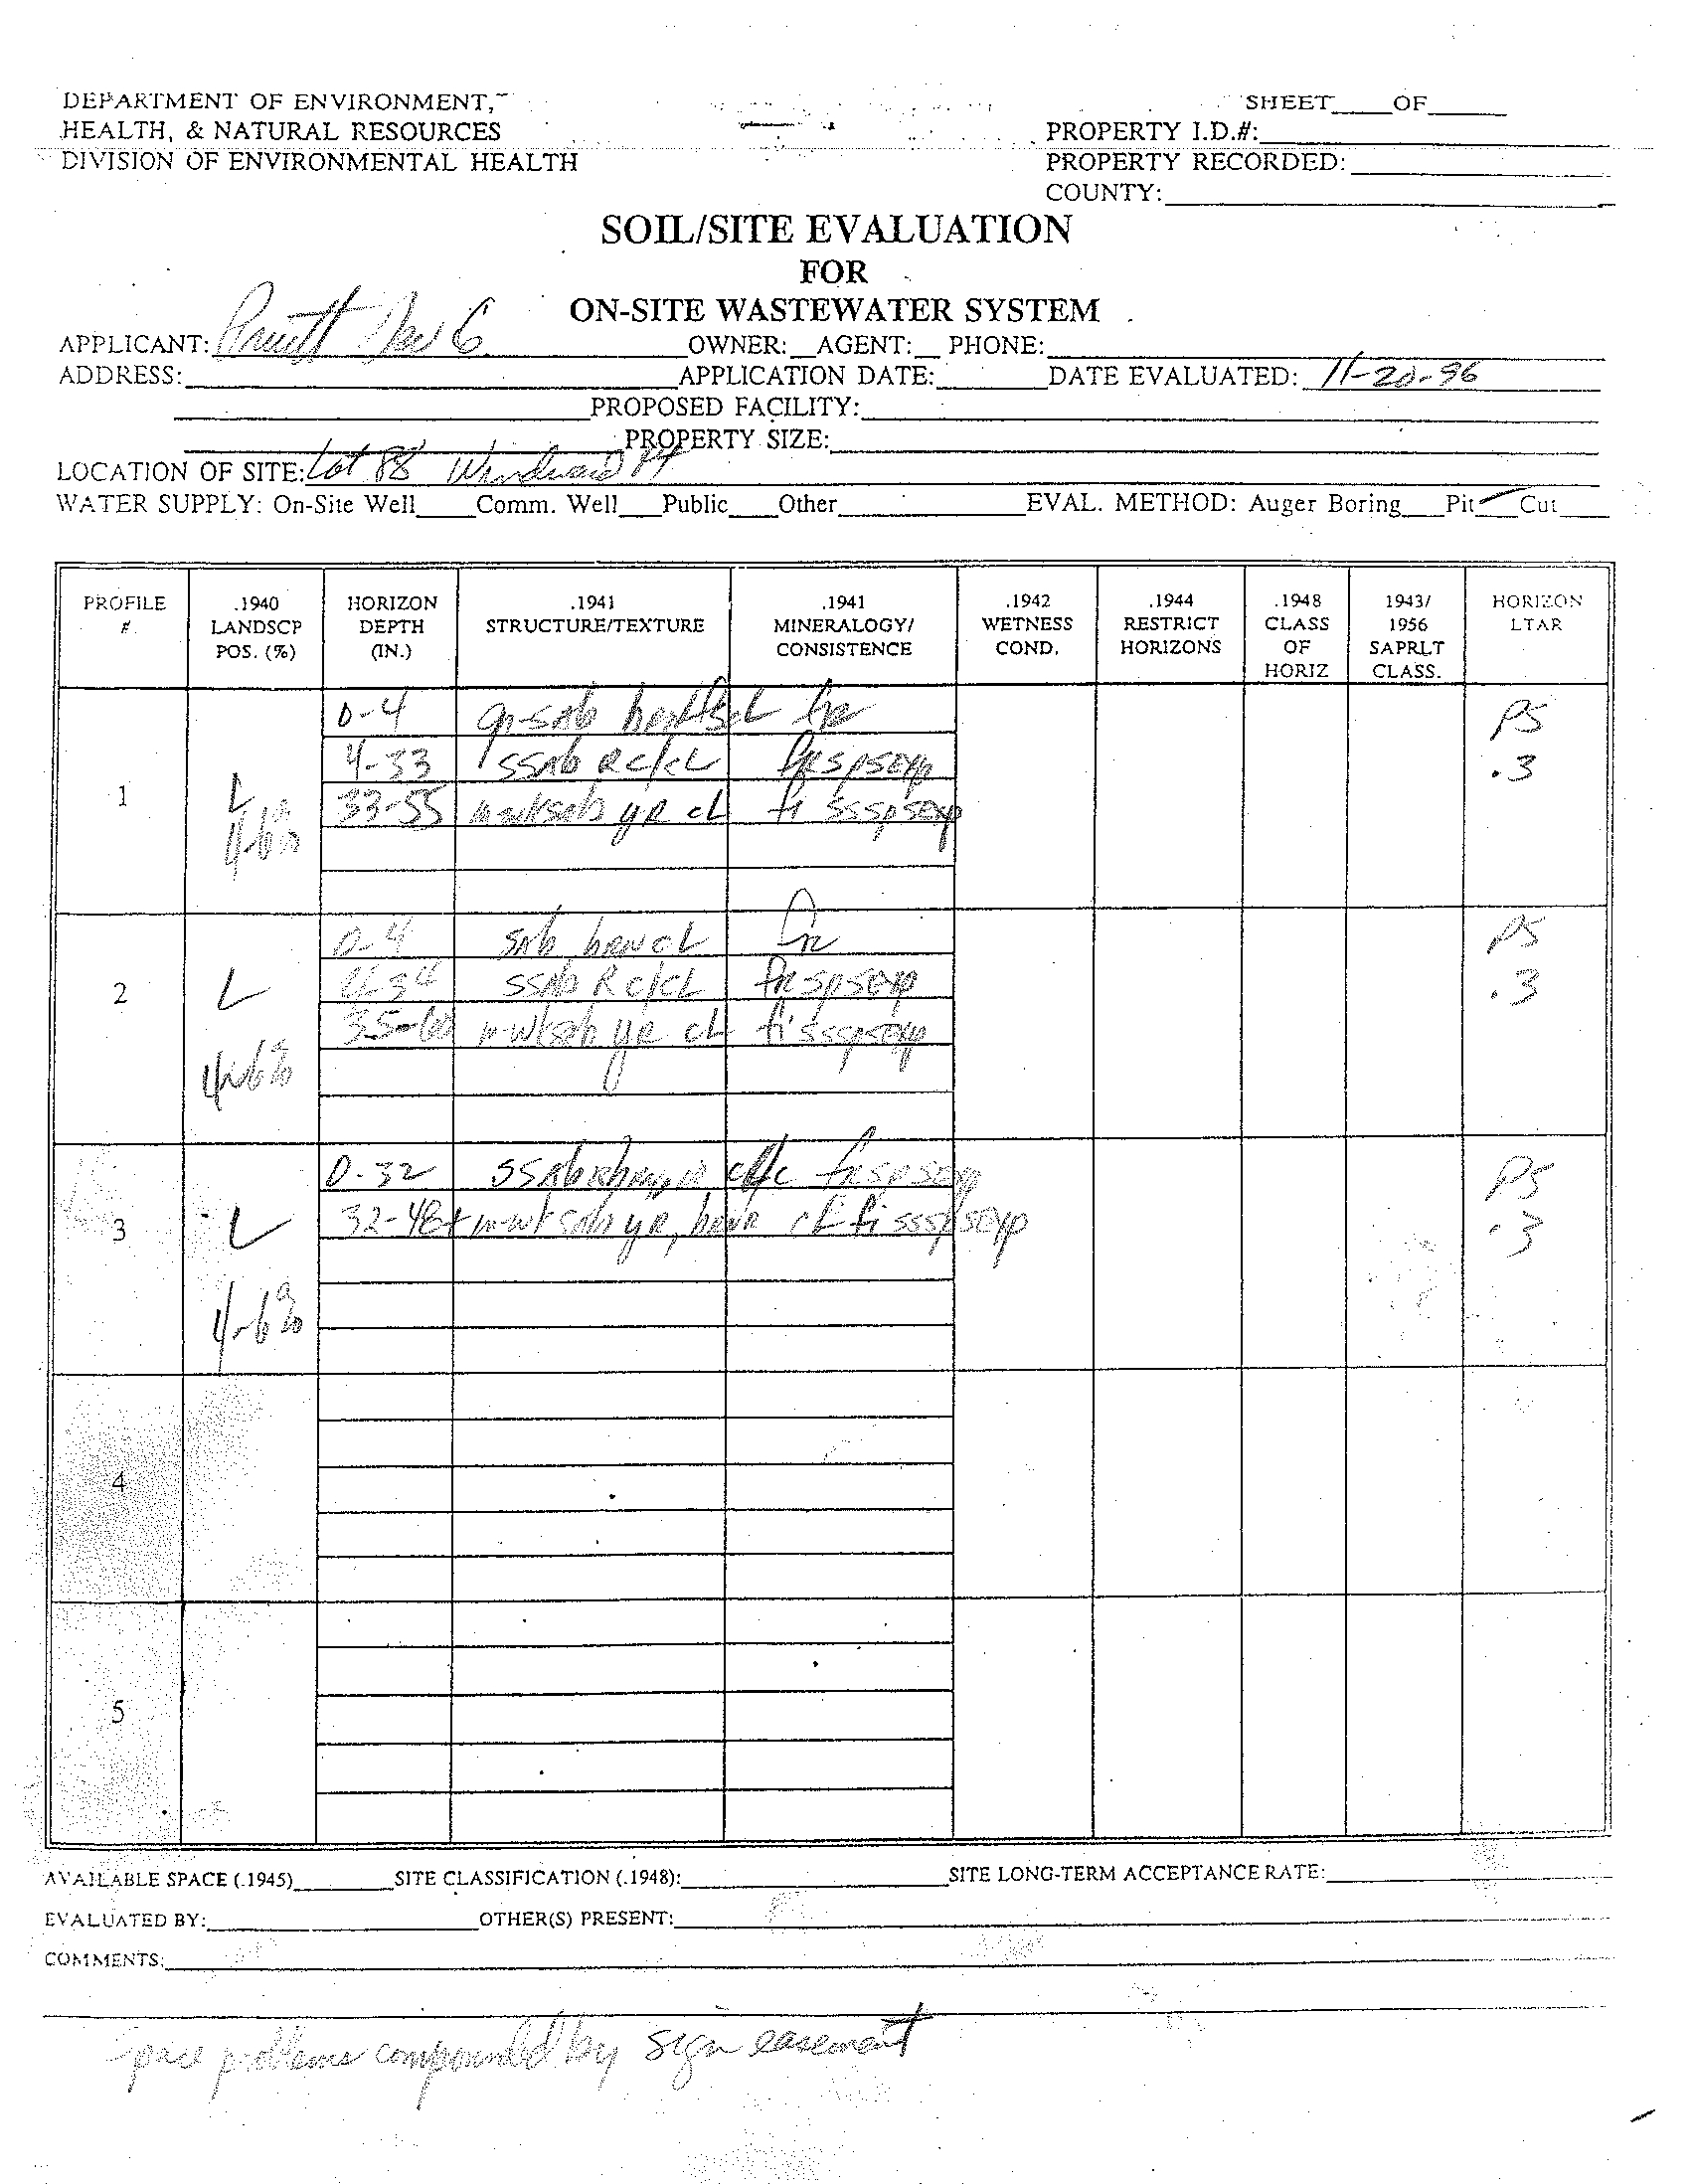 DEPARTMENT OF ENVIRONMENT, SHEET____OF______
HEALTH, & NATURAL RESOURCES PROPERTY I.D.#:
DIVISION OF ENVIRONMENTAL HEALTH PROPERTY RECORDED:
COUNTY:
SOIL/SITE EVALUATION
FOR
ON-SITE WASTEWATER SYSTEM
APPLICANT: Pruitt OWNER:__AGENT:__ PHONE:
ADDRESS: APPLICATION DATE: DATE EVALUATED: 11-20-96
PROPOSED FACILITY:
PROPERTY SIZE:
LOCATION OF SITE: Lot 88 Windward Pt
WATER SUPPLY: On-Site Well____Comm. Well___Public___Other EVAL. METHOD: Auger Boring___Pit✓ Cut
PROFILE #. .1940 LANDSCP POS. (%) HORIZON DEPTH (IN.) .1941 STRUCTURE/TEXTURE .1941 MINERALOGY/ CONSISTENCE .1942 WETNESS COND. .1944 RESTRICT HORIZONS .1948 CLASS OF HORIZ 1943/ 1956 SAPRLT CLASS. HORIZON LTAR
0-4 fr PS
4-33 ssab R c/cL frspsexp .3
1 L 33-55 m-wksab yR cL fi ssspsexp
4-6%
0-4 sab brn cL fr PS
2 L ssab R c/cL frspsexp .3
m-wksab yR cL fi ssspsexp
4-6%
0-32 frspsexp PS
3 L 32-48+ m-wk sab yR, cL fi ssspsexp .3
4-6%
4
5
AVAILABLE SPACE (.1945) SITE CLASSIFICATION (.1948): SITE LONG-TERM ACCEPTANCE RATE:
EVALUATED BY: OTHER(S) PRESENT:
COMMENTS:
Space problems compounded by sign easement